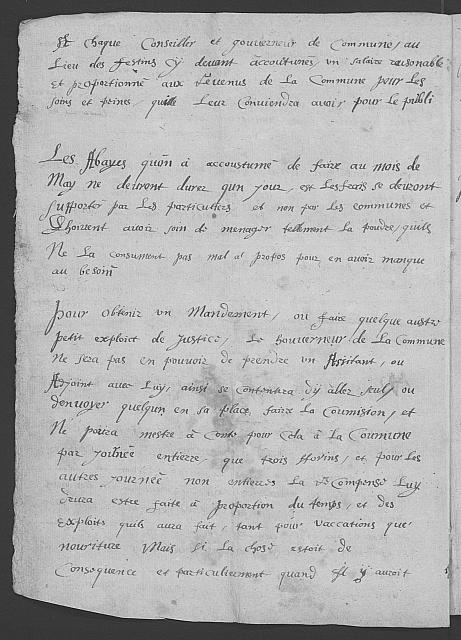 Et chaque Conseiller et gouverneur de Commune, au
Lieu des festins cy devant accoutunes, un salaire raisonable
et proportionné aux Revenus de La Commune pour les
soins et peines, quils Leur Conviendra avoir pour le publi
Les Abayes quon à accoustumé de faire au mois de
May ne devront durer qun jour, et Lesfrais se devront
supporter par Les particuliers et non par les communes et
doivent avoir soin de menager tellment la poudre, quils
Ne La consument pas mal a propos pour en avoir manque
au besoin
Pour obtenir un Mandement, ou faire quelque austre
petit exploict de Justice, Le Gouverneur de La Commune
Ne sera pas en pouvoir de prendre un Assistant, ou
Adjoint avec Luy, ainsi se contentera d'y aller seul, ou
denvoyer quelqun en sa place, faire La Coumission, et
Ne poura mestre à Conte pour Cela à La Coumune
par journée entierre, que trois florins, et pour Les
autres journée non entieres La Recompense Luy
devra estre faite à proportion du temps, et des
exploits quils aura fait, tant pour vaccations que
nouriture Mais si La chose estoit de
Consequence et particulierement quand il y auroit